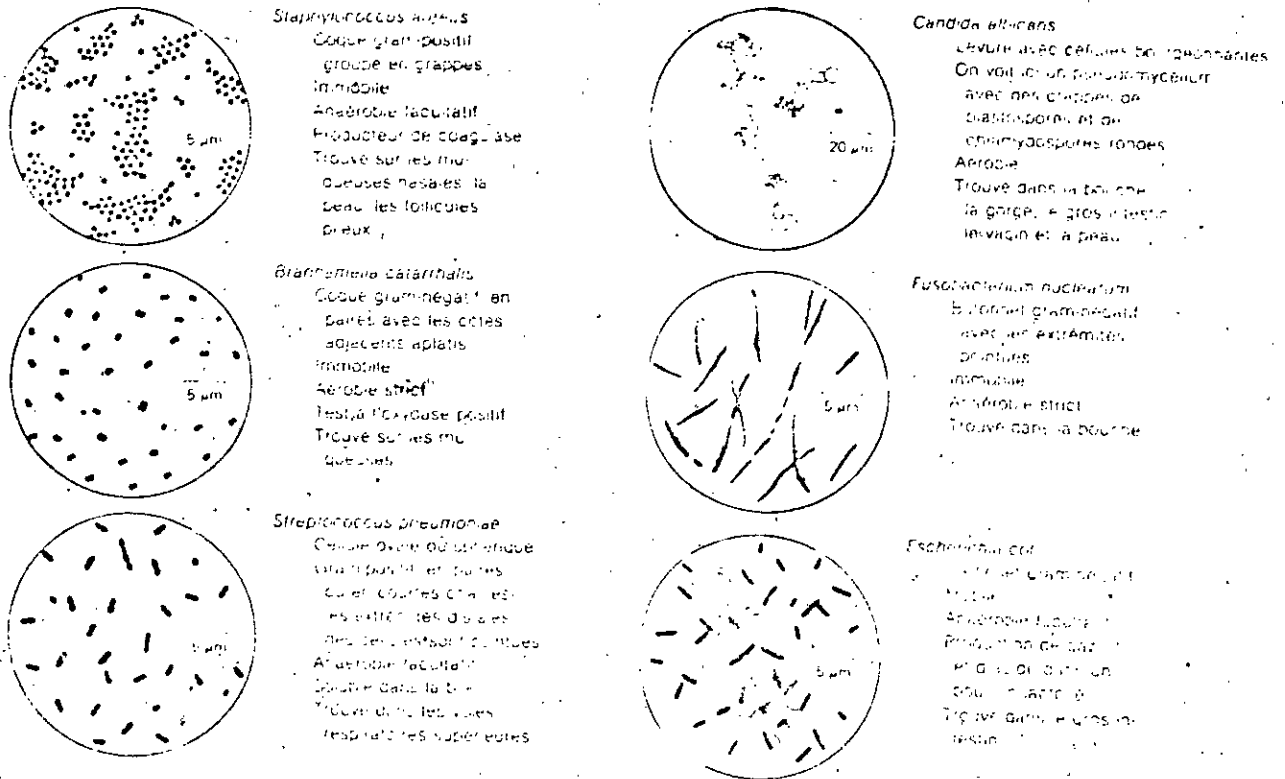 Staphylococcus aureus
Coque gram-positif
groupé en grappes
Immobile
Anaérobie facultatif
Producteur de coagulase
Trouvé sur les mu-
queuses nasales la
peau les follicules
pileux
5 µm
Branhamella catarrhalis
Coque gram-négatif en
paires avec les côtés
adjacents aplatis
Immobile
Aérobie strict
Test à l'oxydase positif
Trouvé sur les mu
queuses
5 µm
Streptococcus pneumoniae
Cellule ovale ou sphérique
Gram positif en paires
ou en courtes chaînes
les extrémités distales
des
Anaérobie facultatif
Soluble dans la bile
Trouvé dans les voies
respiratoires supérieures
5 µm
Candida albicans
Levure avec cellules bourgeonnantes
On voit ici un pseudomycelium
avec des grappes de
blastospores et de
chlamydospores rondes
Aérobie
Trouvé dans la bouche
la gorge, le gros intestin
le vagin et la peau
20 µm
Fusobacterium nucleatum
Bâtonnet gram-négatif
avec les extrémités
pointues
Immobile
Anaérobie strict
Trouvé dans la bouche
5 µm
Escherichia coli
gram-négatif
Mobile
Anaérobie facultatif
Production de gaz
et d'acide dans un
bouillon lactosé
Trouvé dans le gros in-
testin
5 µm